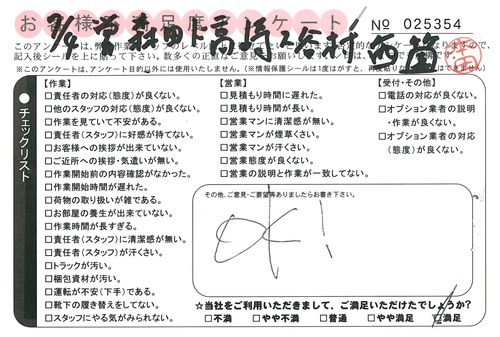 お客様満足度アンケート
No 025354
田
7/4 営 森田 ト 高 谷村 両
このアンケートは、弊
記入後シールを上に貼って下さい。
※このアンケートは、アンケート目的以外には使用いたしません。
チェックリスト
【作業】
□責任者の対応(態度)が良くない。
□他のスタッフの対応(態度)が良くない。
□作業を見ていて不安がある。
□責任者(スタッフ)に好感が持てない。
□お客様への挨拶が出来ていない。
□ご近所への挨拶・気遣いが無い。
□作業開始前の内容確認がなかった。
□作業開始時間が遅れた。
□荷物の取り扱いが雑である。
□お部屋の養生が出来ていない。
□作業時間が長すぎる。
□責任者(スタッフ)に清潔感が無い。
□責任者(スタッフ)が汗くさい。
□トラックが汚い。
□梱包資材が汚い。
□運転が不安(下手)である。
□靴下の履き替えをしてない。
□スタッフにやる気がみられない。
【営業】
□見積もり時間に遅れた。
□見積もり時間が長い。
□営業マンに清潔感が無い。
□営業マンが煙草くさい。
□営業マンが汗くさい。
□営業態度が良くない。
□営業の説明と作業が一致してない。
【受付・その他】
□電話の対応が良くない。
□オプション業者の説明
・作業が良くない。
□オプション業者の対応
(態度)が良くない。
その他、ご意見・ご要望等ありましたらお書き下さい。
OK!
☆当社をご利用いただきまして、ご満足いただけたでしょうか?
□不満 □やや不満 □普通 □やや満足 □満足